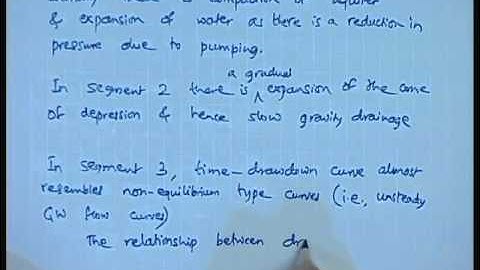 of aquifer
& expansion of water as there is a reduction in
pressure due to pumping.
In segment 2 there is a gradual expansion of the cone
of depression & hence slow gravity drainage
In segment 3, time-drawdown curve almost
resembles non-equilibrium type curves (i.e., unsteady
GW flow curves)
The relationship between dra